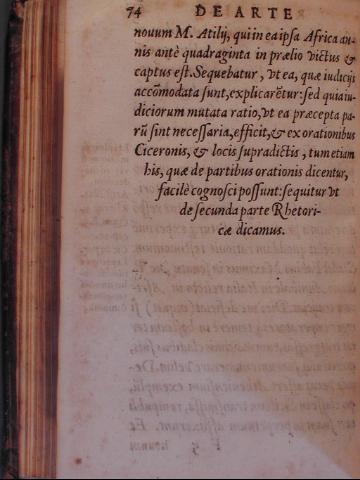 74 DE ARTE
nouum M. Atilij, qui in ea ipsa Africa an-
nis antè quadraginta in prælio victus &
captus est. Sequebatur, vt ea, quæ iudicij
accõmodata sunt, explicarẽtur: sed quia iu-
diciorum mutata ratio, vt ea præcepta pa-
rũ sint necessaria, efficit, & ex orationibus
Ciceronis, & locis supradictis, tum etiam
his, quæ de partibus orationis dicentur,
facilè cognosci possunt: sequitur vt
de secunda parte Rhetori-
cæ dicamus.